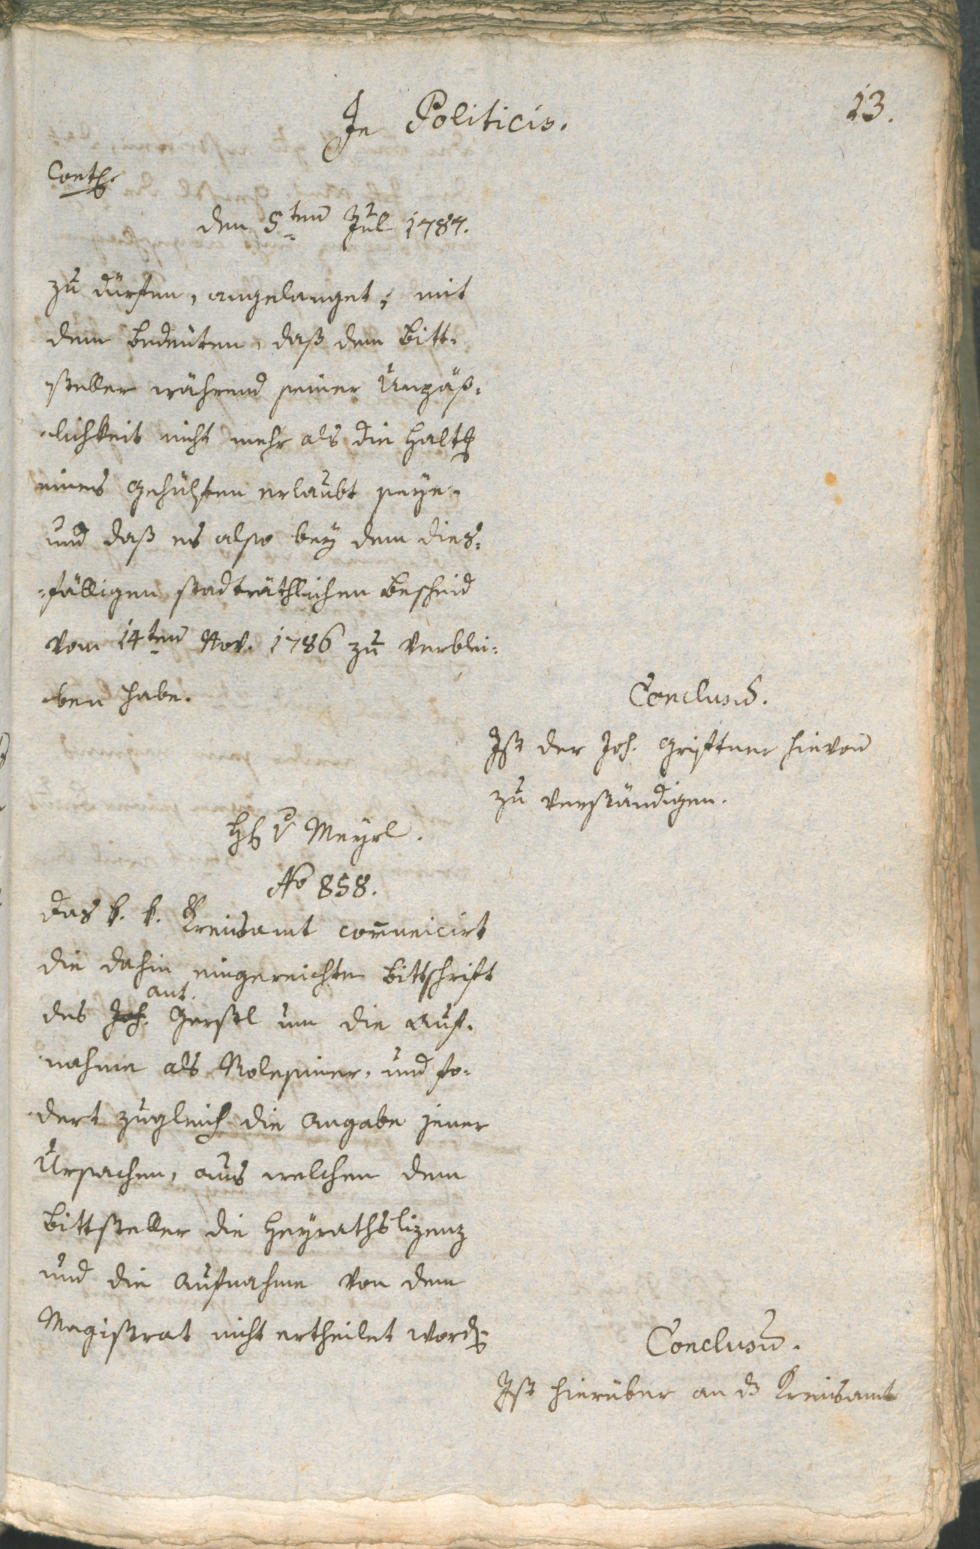 13.
In Politicis.
Cont.
den 5ten Jul 1787.
zu dürfen, angelanget; mit
dem bedeuten, daß dem Bitt-
steller während seiner Unpäß-
lichkeit nicht mehr als die Halt
eines Gehülfen erlaubt seye,
und daß es also bey dem dies-
fälligen stadträthlichen Bescheid
vom 14ten Nov. 1786 zu verblei-
ben habe.
Conclusum.
Ist der Joh. hievon
zu verständigen.
H v Meyrl.
No 858.
Das k. k. Kreisamt communicirt
die dahin eingereichte Bittschrift
ant.
des Joh. Gerstl um die Auf-
nahme als und fo-
dert zugleich die Angabe jener
Ursachen, aus welchen dem
Bittsteller die Heyrathslizenz
und die Aufnahme von dem
Magistrat nicht ertheilet word.
Conclusum.
Ist hierüber an d Kreisamt